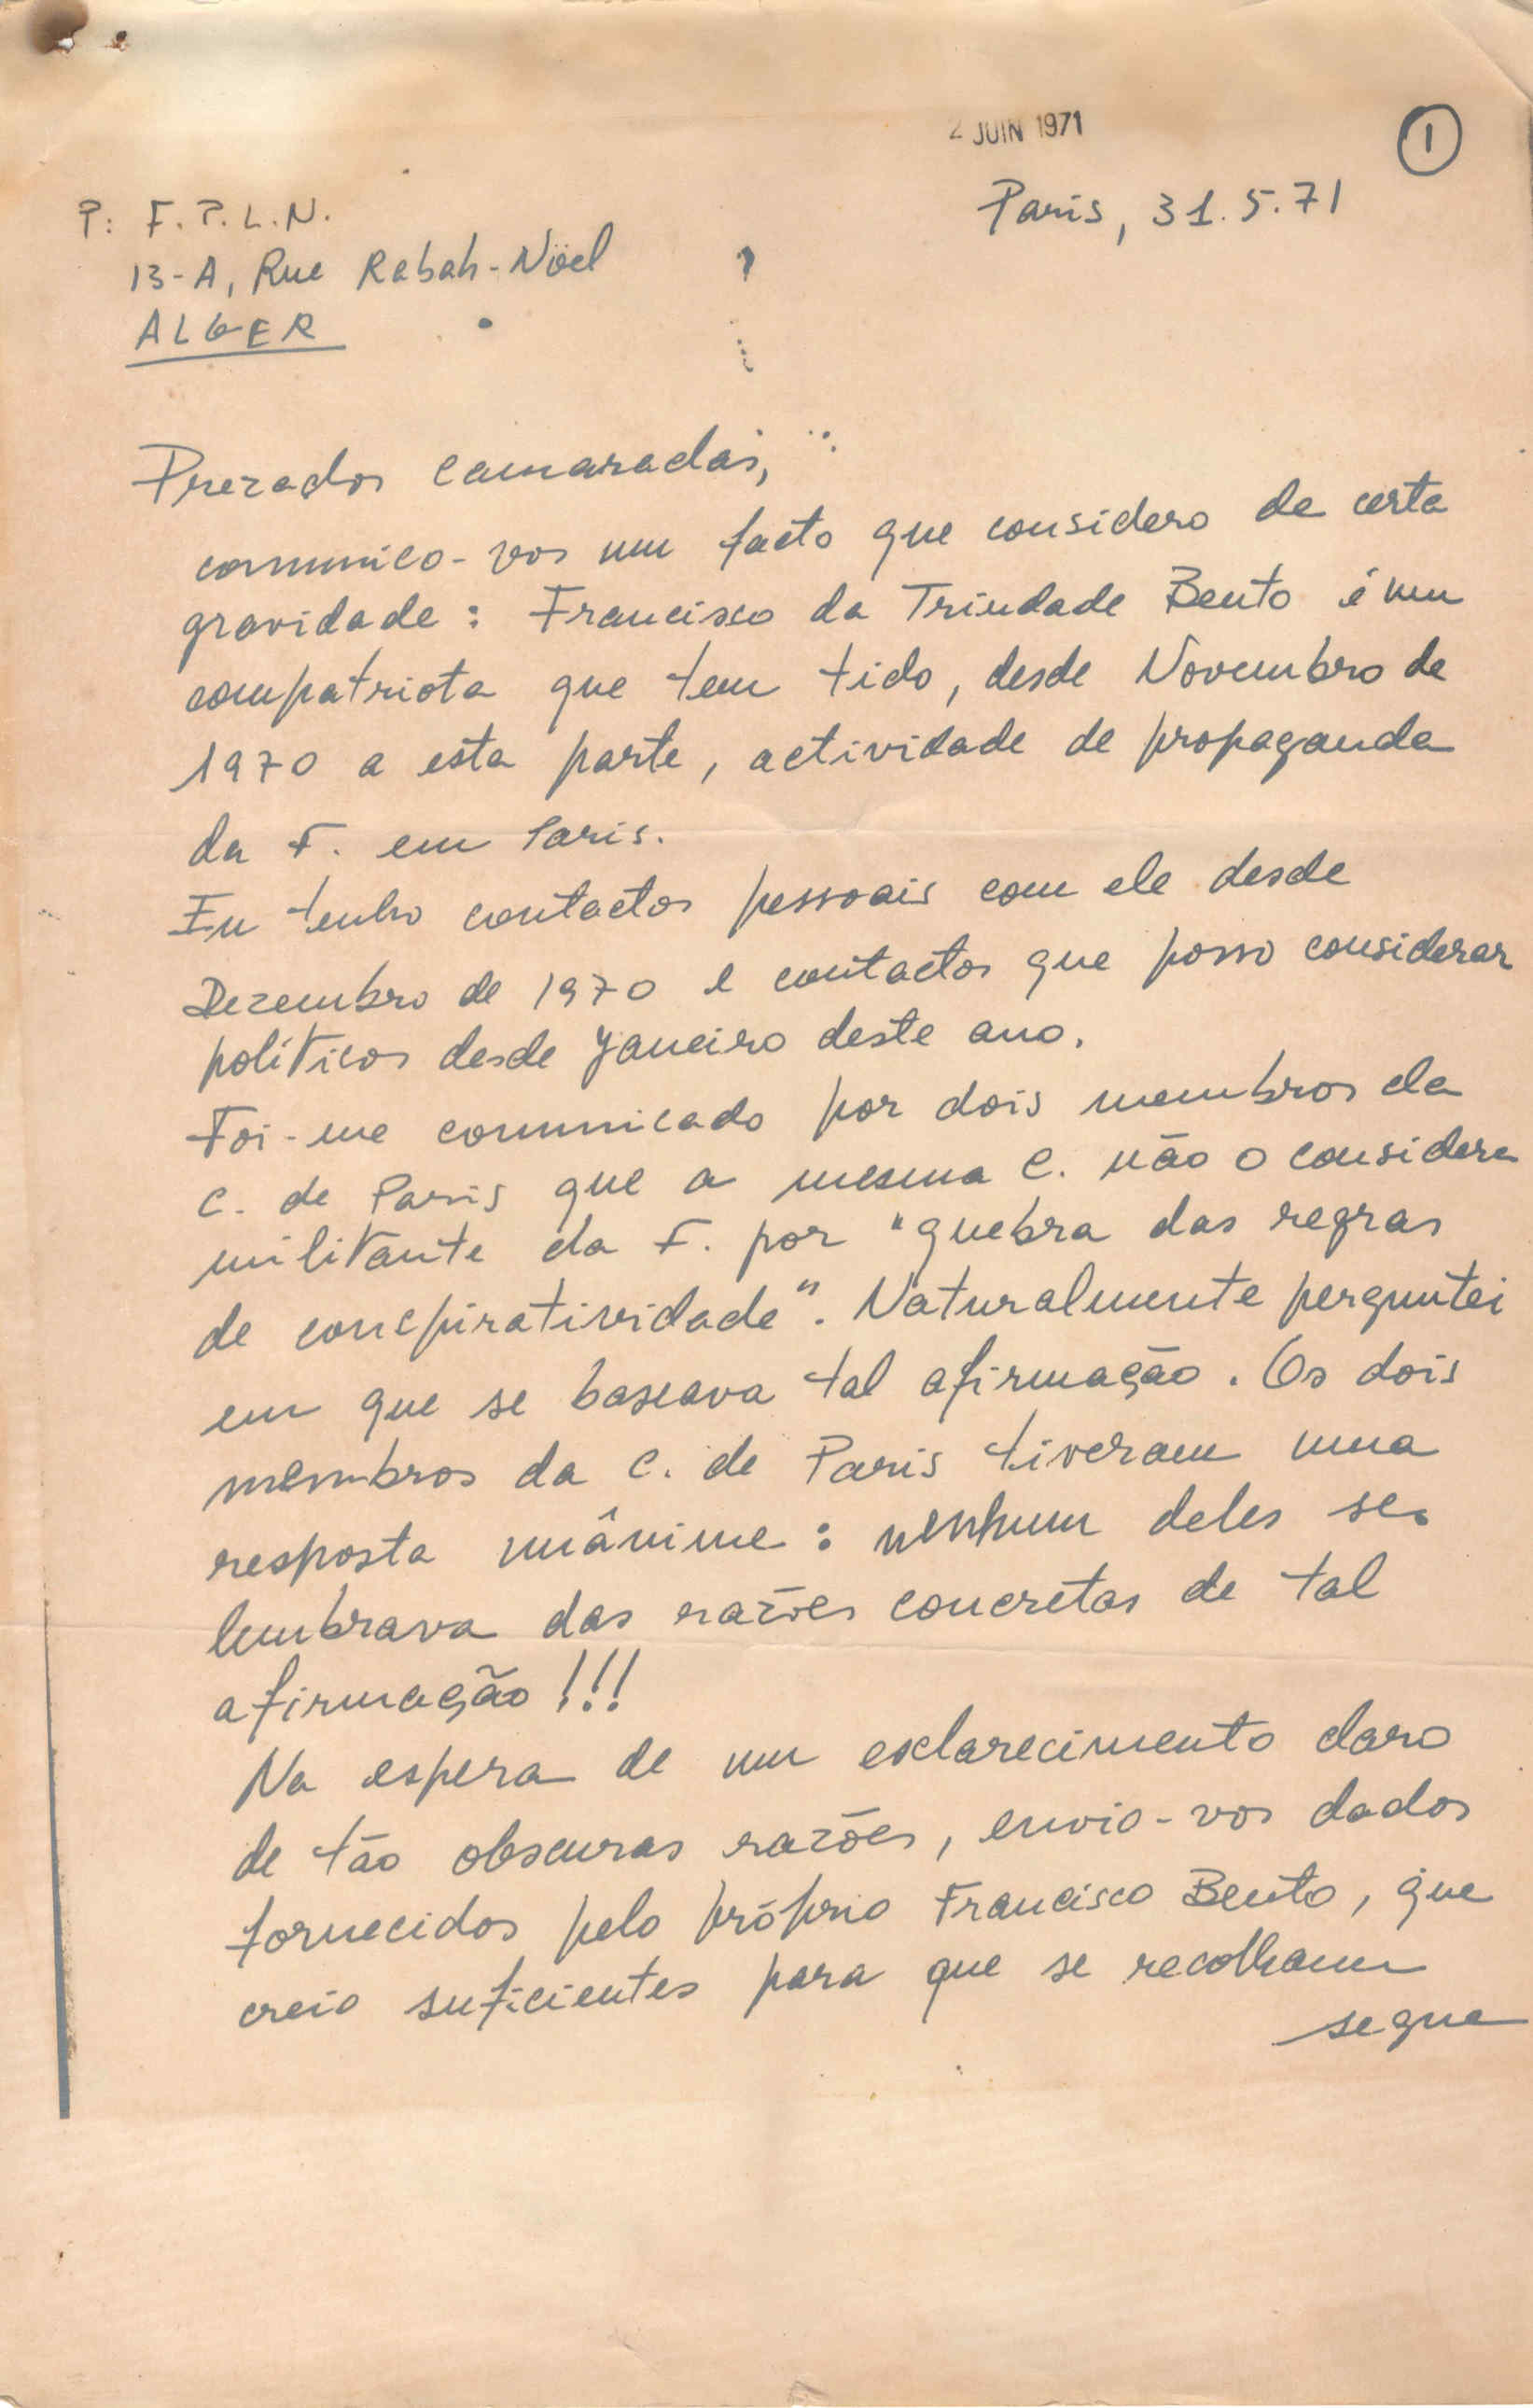 2 JUIN 1971
1
Paris, 31.5.71
P: F.P.L.N.
13-A, Rue Rabah-Nöel
ALGER
Prezados camaradas,
comunico-vos um facto que considero de certa
gravidade: Francisco da Trindade Bento é um
compatriota que tem tido, desde Novembro de
1970 a esta parte, actividade de propaganda
da F. em Paris.
Eu tenho contactos pessoais com ele desde
Dezembro de 1970 e contactos que posso considerar
políticos desde Janeiro deste ano.
Foi-me comunicado por dois membros da
C. de Paris que a mesma C. não o considera
militante da F. por "quebra das regras
de conspiratividade". Naturalmente perguntei
em que se baseava tal afirmação. Os dois
membros da C. de Paris tiveram uma
resposta unânime: nenhum deles se
lembrava das razões concretas de tal
afirmação!!!
Na espera de um esclarecimento claro
de tão obscuras razões, envio-vos dados
fornecidos pelo próprio Francisco Bento, que
creio suficientes para que se recolham
segue